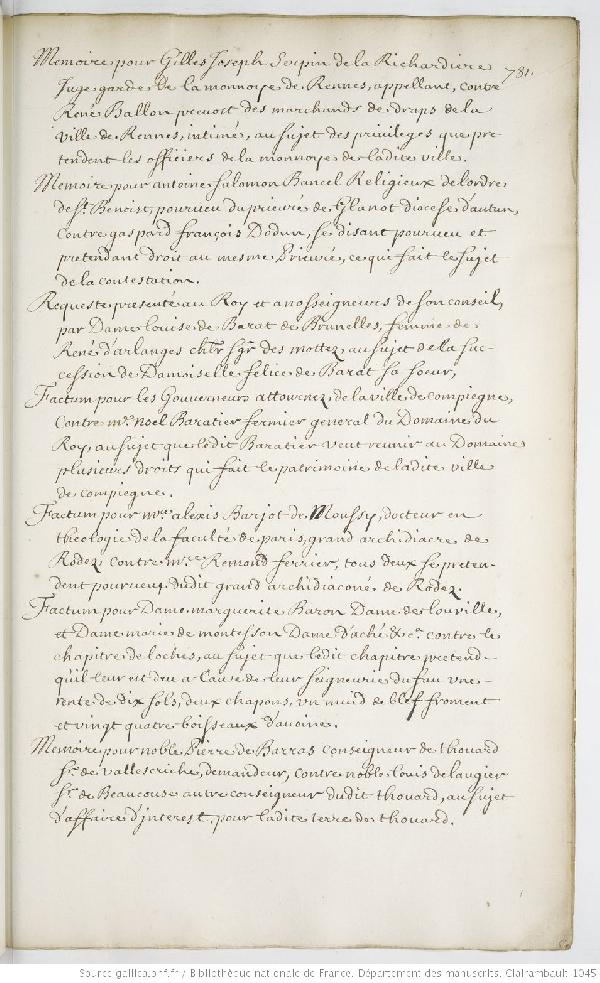 Memoire pour Gilles Joseph Serpin de la Richardiere
781.
Juge garde de la monnoye de Rennes, appellant, contre
René Ballon prevost des marchands de draps de la
ville de Rennes, intimé, au sujet des privileges que pre-
tendent les officiers de la monnoye de ladite ville.
Memoire pour antoine salomon Bancel Religieux de l'ordre
de St. Benoist, pourveu du prieuré de Glanot diocese d'autun,
Contre gaspard françois Dodun, se disant pourveu et
pretendant droit au mesme Prieuré, ce qui fait le sujet
de la contestation.
Requeste presenté au Roy et a nosseigneurs de son conseil,
par Dame louise de Barat de Brunelles, femme de
René d'arlanges chlr. sgr. des mottez au sujet de la suc-
cession de Damoiselle felice de Barat sa soeur,
Factum pour les Gouverneurs attournez de la ville de compiegne,
Contre mre. noel Baratier fermier general du Domaine du
Roy, au sujet que ledit Baratier veut reunir au Domaine
plusieurs droits qui fait le patrimoine de ladite ville
de compiegne.
Factum pour mre. alexis Barjot de Moussy, docteur en
theologie de la faculté de paris, grand archidiacre de
Rodez contre mre. Remond ferrier, tous deux se preten-
dent pourveus dudit grand archidiaconé de Rodez.
Factum pour Dame marguerite Baron Dame de louville,
et Dame marie de montesson Dame d'aché &c. contre le
chapitre de loches, au sujet que ledit chapitre pretend
qu'il leur est deu a cause de leur seigneurie du fau une
rente de dix sols, deux chapons, un muid de blef froment
et vingt quatre boisseaux d'avoine.
Memoire pour noble Pierre de Barras conseigneur de thouard
sr. de vallescriche, demandeur, contre noble louis de laugier
sr. de Beaucouse autre conseigneur dudit thouard, au sujet
d'affaire d'interest, pour ladite terre de thouard.
Source gallica.bnf.fr / Bibliothèque nationale de France. Département des manuscrits. Clairambault 1045